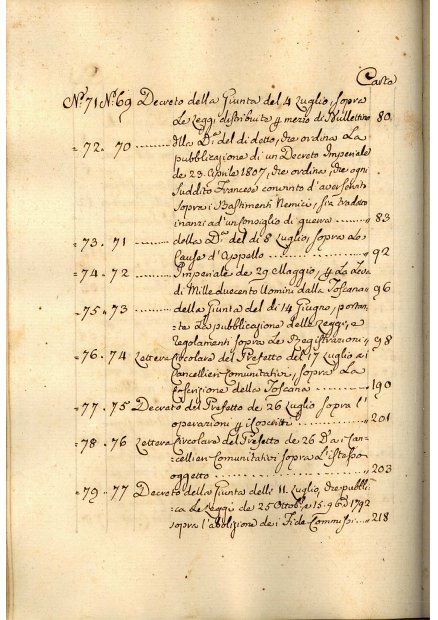 Carta
N.° 71 N.° 69 Decreto della Giunta del 4 Luglio, sopra
Le Leggi distribuite p mezzo di Bullettino 80
= 72. 70 .......... della D.a del di detto, che ordina La
pubblicazione di un Decreto Imperiale
de 23. Aprile 1807, che ordina, che ogni
Suddito Francese convinto d'aver servito
sopra i Bastimenti Nemici, sia tradotto
inanzi ad un Consiglio di guerra .......... „ 83
= 73. 71 .......... della D.a del di 8 Luglio, sopra Le
Cause d'Appello .......... „ 92
= 74. 72 .......... Imperiale de 29 Maggio, p La Leva
di Mille duecento Uomini dalla Toscana „ 96
= 75. 73 .......... della Giunta del di 14 Giugno, portan-
te La pubblicazione delle Leggi, e
regolamenti sopra Le Registrazioni „ 98
= 76. 74 Lettera Circolare del Prefetto del 17 Luglio ai
Cancellieri Comunitativi, sopra La
Coscrizione della Toscana .......... „ 190
= 77. 75 Decreto del Prefetto de 26 Luglio sopra l'
operazioni p i Coscritti .......... „ 201
= 78. 76 Lettera Circolare del Prefetto de 26 D.o ai Can-
cellieri Comunitativi sopra L'istesso
oggetto .......... „ 203
= 79. 77 Decreto della Giunta delli 11. Luglio, che pubbli-
ca Le Leggi de 25 Ottob.e e 15. 9b.e 1792
sopra l'abolizione dei Fide Commissi .... „ 218